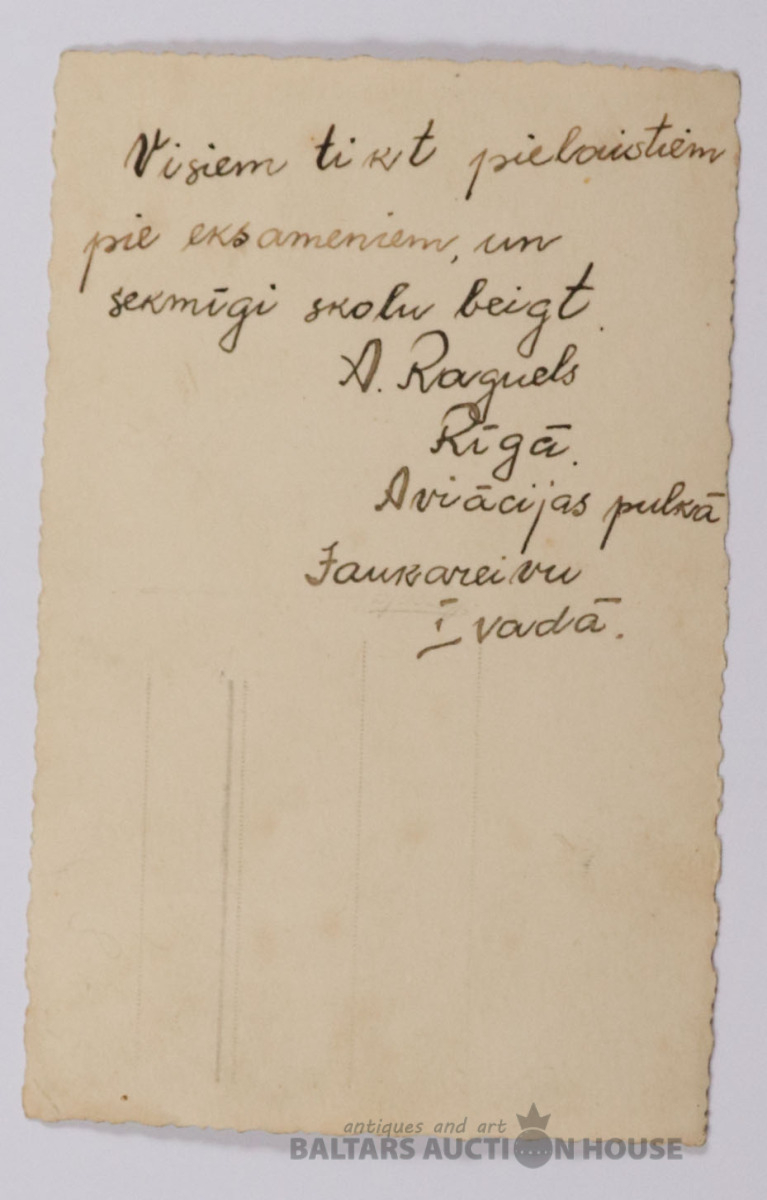 Visiem tikt pielaistiem
pie eksameniem, un
sekmīgi skolu beigt.
A. Raguels
Rīgā.
Aviācijas pulkā
Jaukareivu
I vadā.
antiques and art
BALTARS AUCTION HOUSE